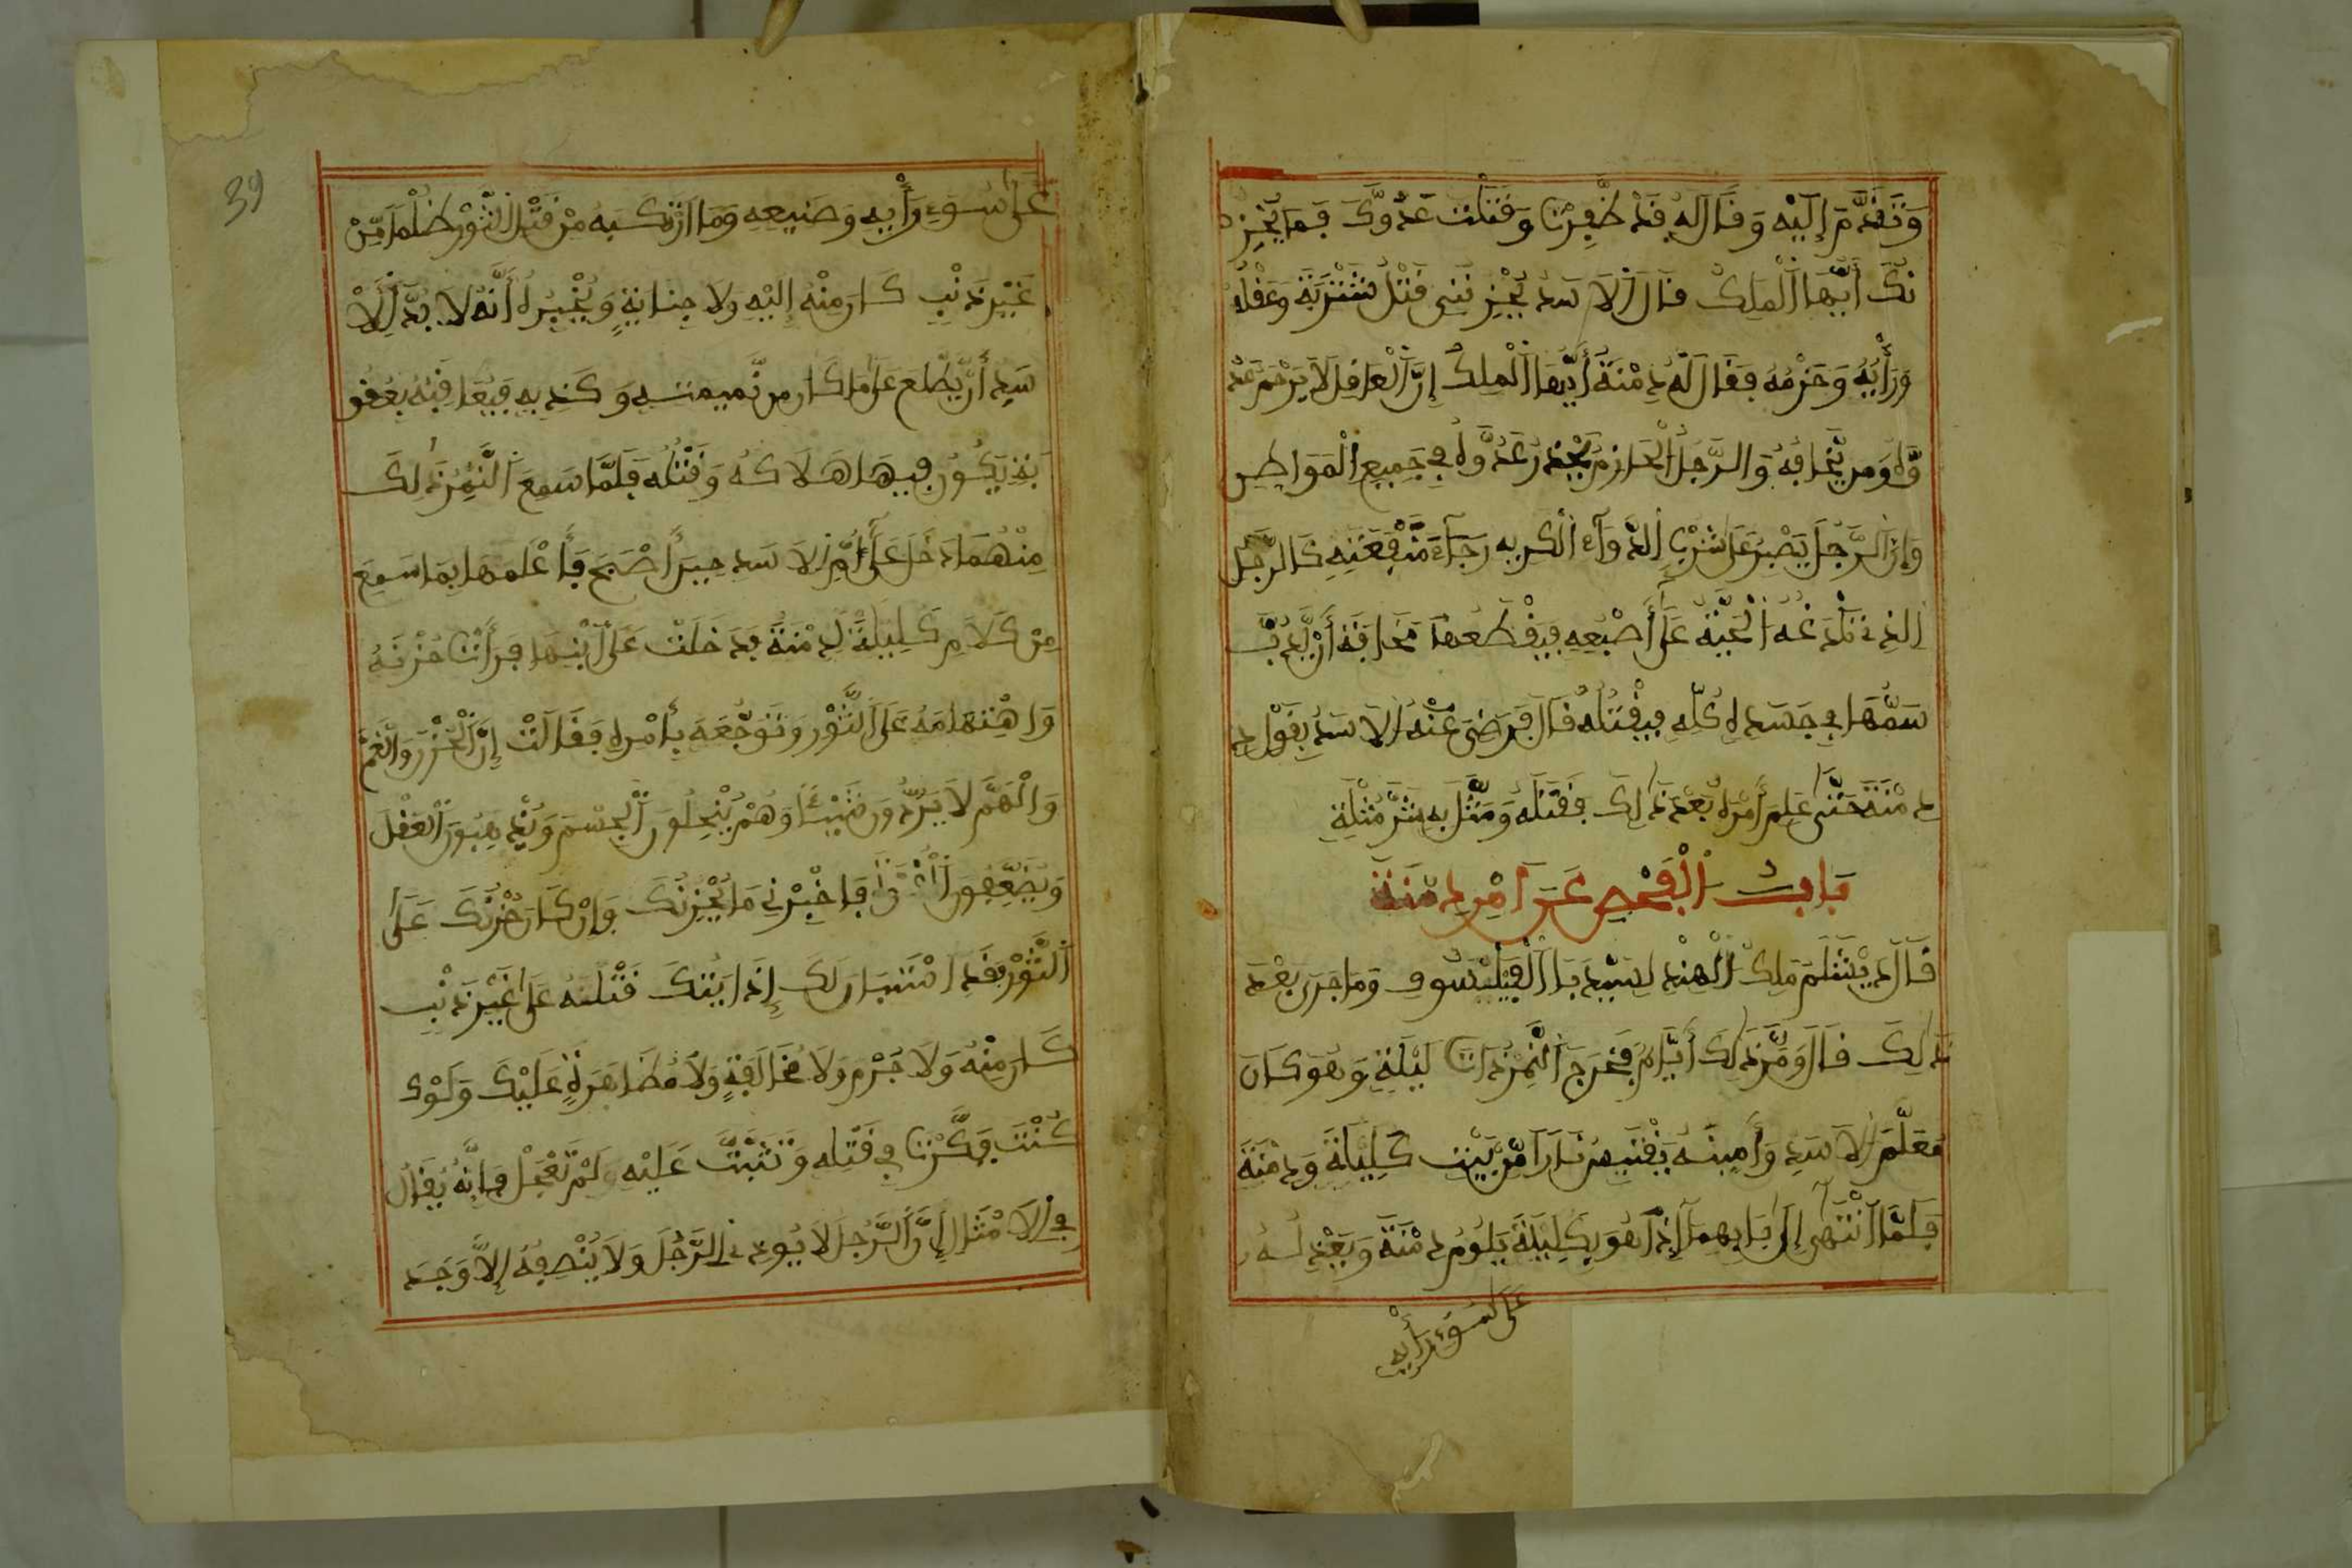 وَتَقَدَّمَ إِلَيْهِ وَقَالَ لَهُ قَدْ ظَفِرْتَ وَقَتَلْتَ عَدُوَّكَ فَمَا يُحْزِ
نُكَ أَيُّهَا الْمَلِكُ قَالَ الْاسَدُ يُحْزِنُنِي قَتْلُ شَنْزَبَةَ وَعَقْلُهُ
وَرَأْيُهُ وَحَزْمُهُ فَقَالَ لَهُ دِمْنَةُ أَيُّهَا الْمَلِكُ إِنَّ الْعَاقِلَ لَا يَرْحَمُ عَدُ
وَّهُ وَمَن يَّخَافُهُ وَالرَّجُلُ الْحَازِمُ يَحْذَرُ عَدُوَّهُ فِي جَمِيعِ الْمَوَاطِنِ
وَإِنَّ الرَّجُلَ يَصْبِرُ عَلَى شُرْبِ الدَّوَاءِ الْكَرِيهِ رَجَاءَ مَنْفَعَتِهِ كَالرَّجُلِ
الذِي تَلْدَغُهُ الْحَيَّةُ عَلَى أَصْبُعِهِ فَيَقْطَعُهَا مَخَافَةَ أَنْ يَّدُبَّ
سَمُّهَا فِي جَسَدِهِ كُلِّهِ فَيَقْتُلَهُ قَالَ فَرَضِيَ عَنْهُ الْاسَدُ بِقَوْلِ دِ
دِمْنَةَ حَتَّى عَلِمَ أَمْرَهُ بَعْدَ ذَالِكَ فَقَتَلَهُ وَمَثَّلَ بِهِ شَرَّ مُثْلَةٍ
بَابُ الْفَحْصِ عَنَ امْرِ دِمْنَةَ
قَالَ دَبْشَلَمَ مَلِكُ الْهِنْدِ لِبَيْدَبَا الْفَيْلَسُوفِ وَمَا جَرَى بَعْدَ
ذَالِكَ قَالَ وَمَرَّ ذَالِكَ أَيَّامٌ فَخَرَجَ النَّمِرُ ذَاتَ لَيْلَةٍ وَهُوَ كَانَ
مُعَلَّمَ الْاسَدِ وَأَمِينَهُ يَقْتَبِسُ نَارًا مِّن بَيْتِ كَلِيلَةَ وَدِمْنَةَ
فَلَمَّا انْتَهَى إِلَى بَابِهِمَا إِذَا هُوَ بِكَلِيلَةَ يَلُومُ دِمْنَةَ وَيَعْذِلُهُ
عَلَى سُوءِ رَأْيِهِ
39
عَلَى سُوءِ رَأْيِهِ وَصَنِيعِهِ وَمَا ارْتَكَبَهُ مِنْ قَتْلِ الثَّوْرِ ظُلْمًا مِّنْ
غَيْرِ ذَنْبٍ كَانَ مِنْهُ إِلَيْهِ وَلَا جِنَايَةٍ وَيُخْبِرُهُ أَنَّهُ لَا بُدَّ لِلْاَ
سَدِ أَنْ يَّطَّلِعَ عَلَى مَا كَانَ مِن نَّمِيمَتِهِ وَكَذِبِهِ فَيُعَاقِبُهُ بِعُقُو
بَةٍ يَكُونُ فِيهَا هَلَاكُهُ وَقَتْلُهُ فَلَمَّا سَمِعَ النَّمِرُ ذَلِكَ
مِنْهُمَا دَخَلَ عَلَى أُمِّ الْاسَدِ حِينَ أَصْبَحَ فَأَعْلَمَهَا بِمَا سَمِعَ
مِنْ كَلَامِ كَلِيلَةَ لِدِمْنَةَ فَدَخَلَتْ عَلَى ابْنِهَا فَرَأَتْ حُزْنَهُ
وَاهْتِمَامَهُ عَلَى الثَّوْرِ وَتَوَجُّعَهُ بِأَمْرِهِ فَقَالَتْ إِنَّ الْحُزْنَ وَالْغَمَّ
وَالْهَمَّ لَا يَرُدُّونَ شَيْئًا وَهُمْ يُنْحِلُونَ الْجِسْمَ وَيُذْهِبُونَ الْعَقْلَ
وَيُضَعِّفُونَ الْقُوَّةَ فَاخْبِرْنِي مَا يُحْزِنُكَ فَإِنْ كَانَ حُزْنُكَ عَلَى
الثَّوْرِ فَقَدِ اسْتَبَانَ لَكَ إِذَا يُنْكَ قَتْلَتَهُ عَلَى غَيْرِ ذَنْبٍ
كَانَ مِنْهُ وَلَا جُرْمٍ وَلَا مُخَالَفَةٍ وَلَا مُظَاهَرَةٍ عَلَيْكَ وَلَوْ
كُنْتَ فَكَّرْتَ فِي قَتْلِهِ وَتَثَبَّتَّ عَلَيْهِ لَمْ تَعْجَلْ فَإِنَّهُ يُقَالُ
فِي الْامْثَالِ إِنَّ الرَّجُلَ لَا يُوذِي الرَّجُلَ وَلَا يُنْصِفُهُ إِلَّا وَجَدَ